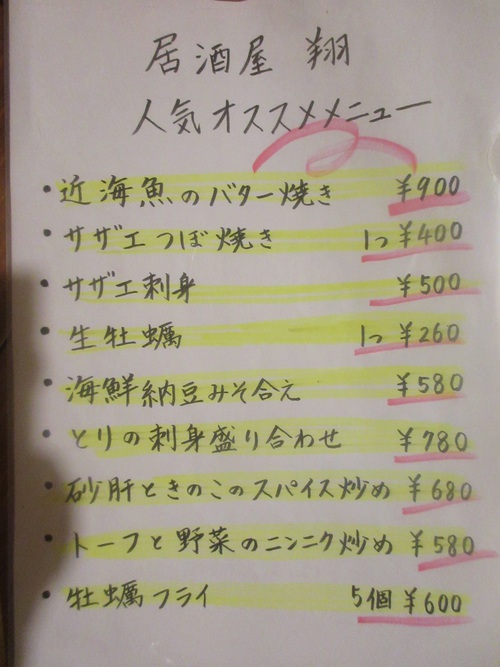 居酒屋 翔
人気オススメメニュー
・近海魚のバター焼き ¥900
・サザエつぼ焼き 1つ ¥400
・サザエ刺身 ¥500
・生牡蠣 1つ ¥260
・海鮮納豆みそ合え ¥580
・とりの刺身盛り合わせ ¥780
・砂肝ときのこのスパイス炒め ¥680
・トーフと野菜のニンニク炒め ¥580
・牡蠣フライ 5個 ¥600